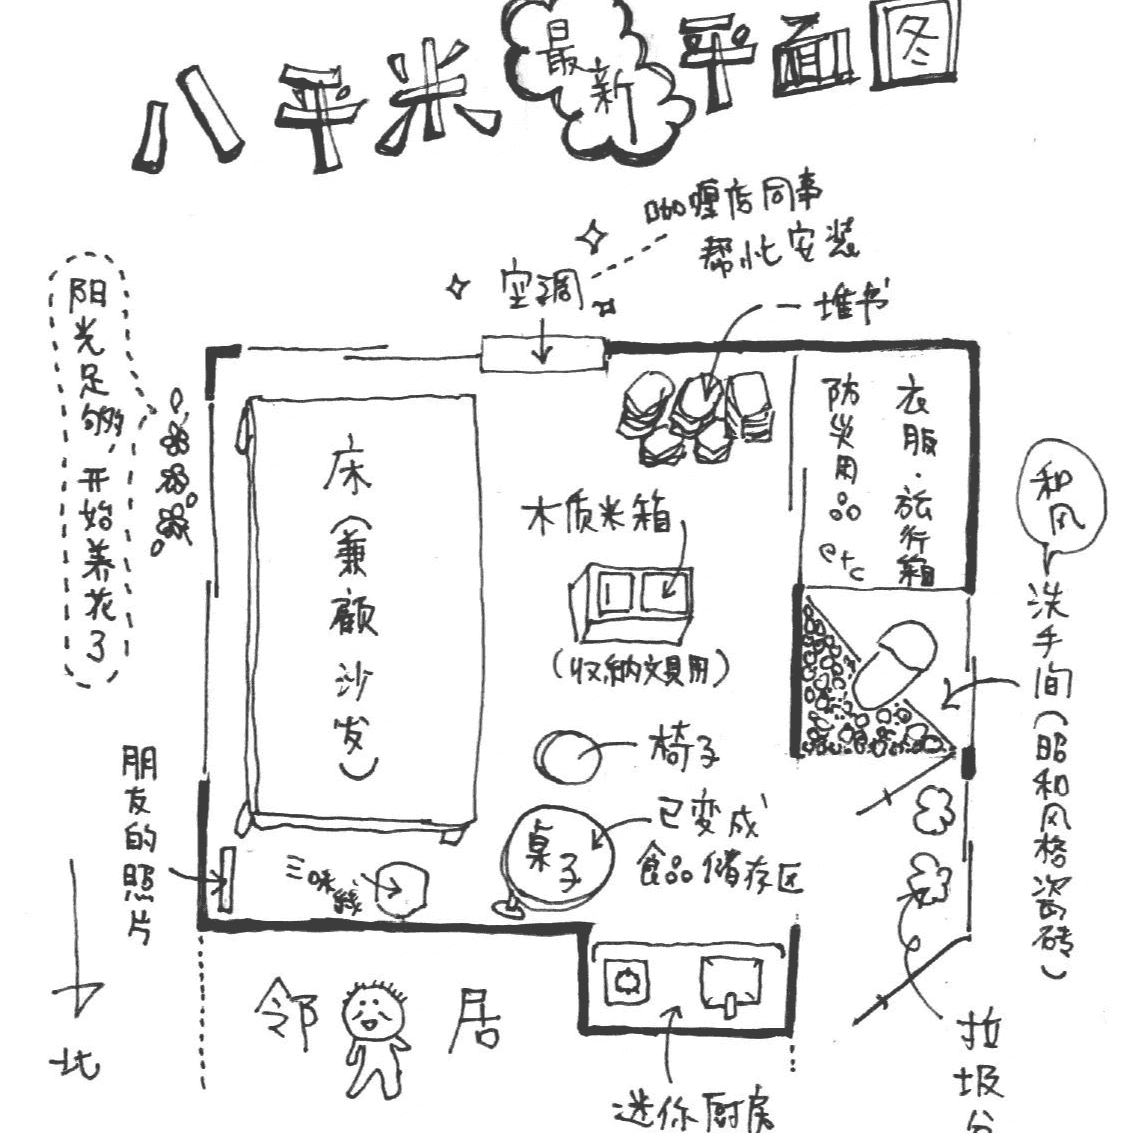 八平米最新平面图
咖喱店同事
帮忙安装
空调
一堆书
阳光足够,开始养花了
床(兼顾沙发)
木质米箱
(收纳文具用)
衣服·旅行箱
防災用品
etc
和风
洗手间(昭和风格瓷砖)
椅子
桌子
已变成
食品储存区
三味线
朋友的照片
北
邻居
迷你厨房
垃圾分